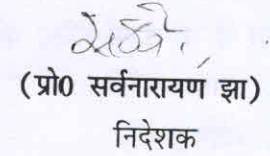 (प्रो0 सर्वनारायण झा)
निदेशक